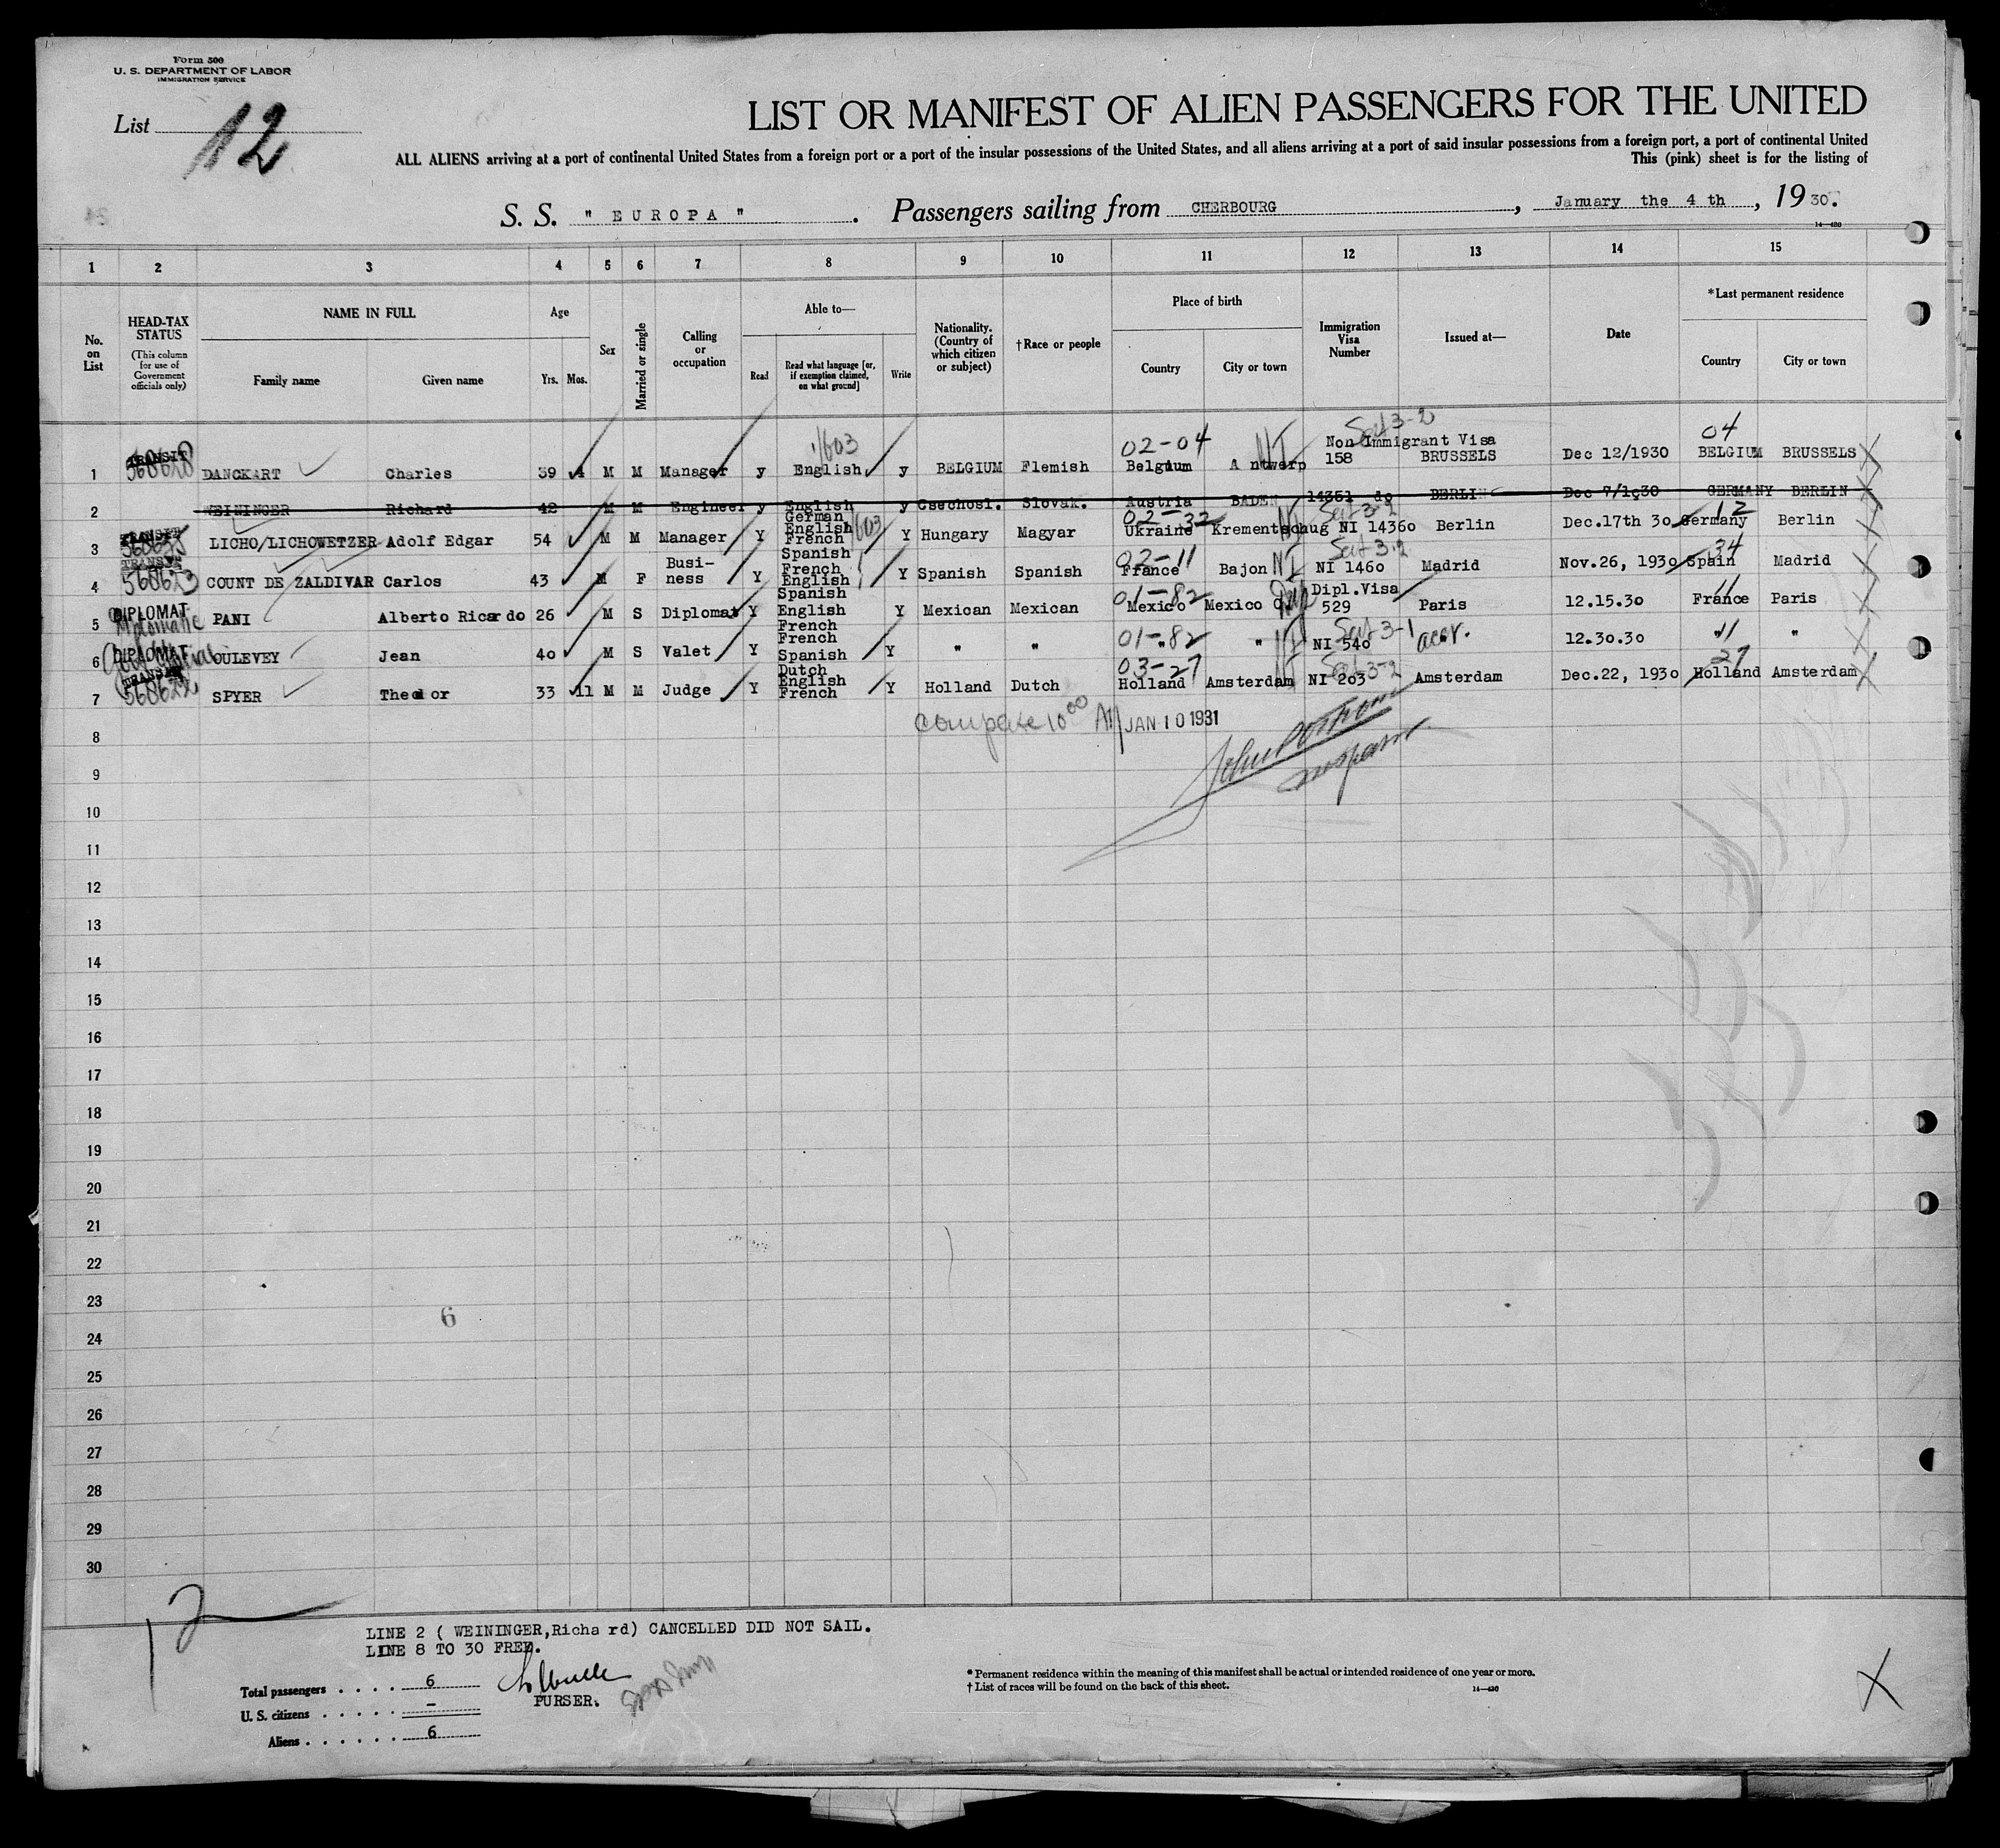 Form 500
U. S. DEPARTMENT OF LABOR
IMMIGRATION SERVICE
List 12
LIST OR MANIFEST OF ALIEN PASSENGERS FOR THE UNITED
ALL ALIENS arriving at a port of continental United States from a foreign port or a port of the insular possessions of the United States, and all aliens arriving at a port of said insular possessions from a foreign port, a port of continental United
This (pink) sheet is for the listing of
S. S. " EUROPA " . Passengers sailing from CHERBOURG , January the 4 th , 19 30.
14—420
1 2 3 4 5 6 7 8 9 10 11 12 13 14 15
No. on List
HEAD-TAX STATUS (This column for use of Government officials only)
NAME IN FULL
Family name Given name
Age
Yrs. Mos.
Sex
Married or single
Calling or occupation
Able to—
Read
Read what language [or, if exemption claimed, on what ground]
Write
Nationality. (Country of which citizen or subject)
†Race or people
Place of birth
Country City or town
Immigration Visa Number
Issued at—
Date
*Last permanent residence
Country City or town
1603 02-04 NI Sect 3-2 04
1 TRANSIT 568628 DANCKART Charles 39 4 M M Manager y English y BELGIUM Flemish Belgium Antwerp Non Immigrant Visa 158 BRUSSELS Dec 12/1930 BELGIUM BRUSSELS
2 WEININGER Richard 42 M M Engineer y English y Csechosl. Slovak. Austria BADEN 14351 do BERLIN Dec 7/1930 GERMANY BERLIN
02-32 NI Sect 3-2 12
3 TRANSIT LICHO/LICHOWETZER Adolf Edgar 54 M M Manager Y German English French 603 Y Hungary Magyar Ukraine Krementschug NI 14360 Berlin Dec.17th 30 Germany Berlin
02-11 NI Sect 3-2 34
4 TRANSIT 568623 COUNT DE ZALDIVAR Carlos 43 M F Busi-ness Y Spanish French English Y Spanish Spanish France Bajon NI 1460 Madrid Nov.26, 1930 Spain Madrid
01-82 Dip 11
5 DIPLOMAT Diplomatic PANI Alberto Ricardo 26 M S Diplomat Y Spanish English French Y Mexican Mexican Mexico Mexico C. Dipl.Visa 529 Paris 12.15.30 France Paris
01-82 NI Sect 3-1 11
6 DIPLOMAT OULEVEY Jean 40 M S Valet Y French Spanish Y " " " " NI 540 accr. 12.30.30 " "
03-27 NI Sect 3-2 27
7 TRANSIT 568622 SPYER Theodor 33 11 M M Judge Y Dutch English French Y Holland Dutch Holland Amsterdam NI 203 Amsterdam Dec.22, 1930 Holland Amsterdam
10 00 AM JAN 10 1931
8
9
10
11
12
13
14
15
16
17
18
19
20
21
22
23
6
24
25
26
27
28
29
30
12
LINE 2 ( WEININGER,Richard) CANCELLED DID NOT SAIL.
LINE 8 TO 30 FREE.
Total passengers . . . . 6
PURSER.
U. S. citizens . . . . . –
Aliens . . . . . . 6
* Permanent residence within the meaning of this manifest shall be actual or intended residence of one year or more.
† List of races will be found on the back of this sheet.
14—420